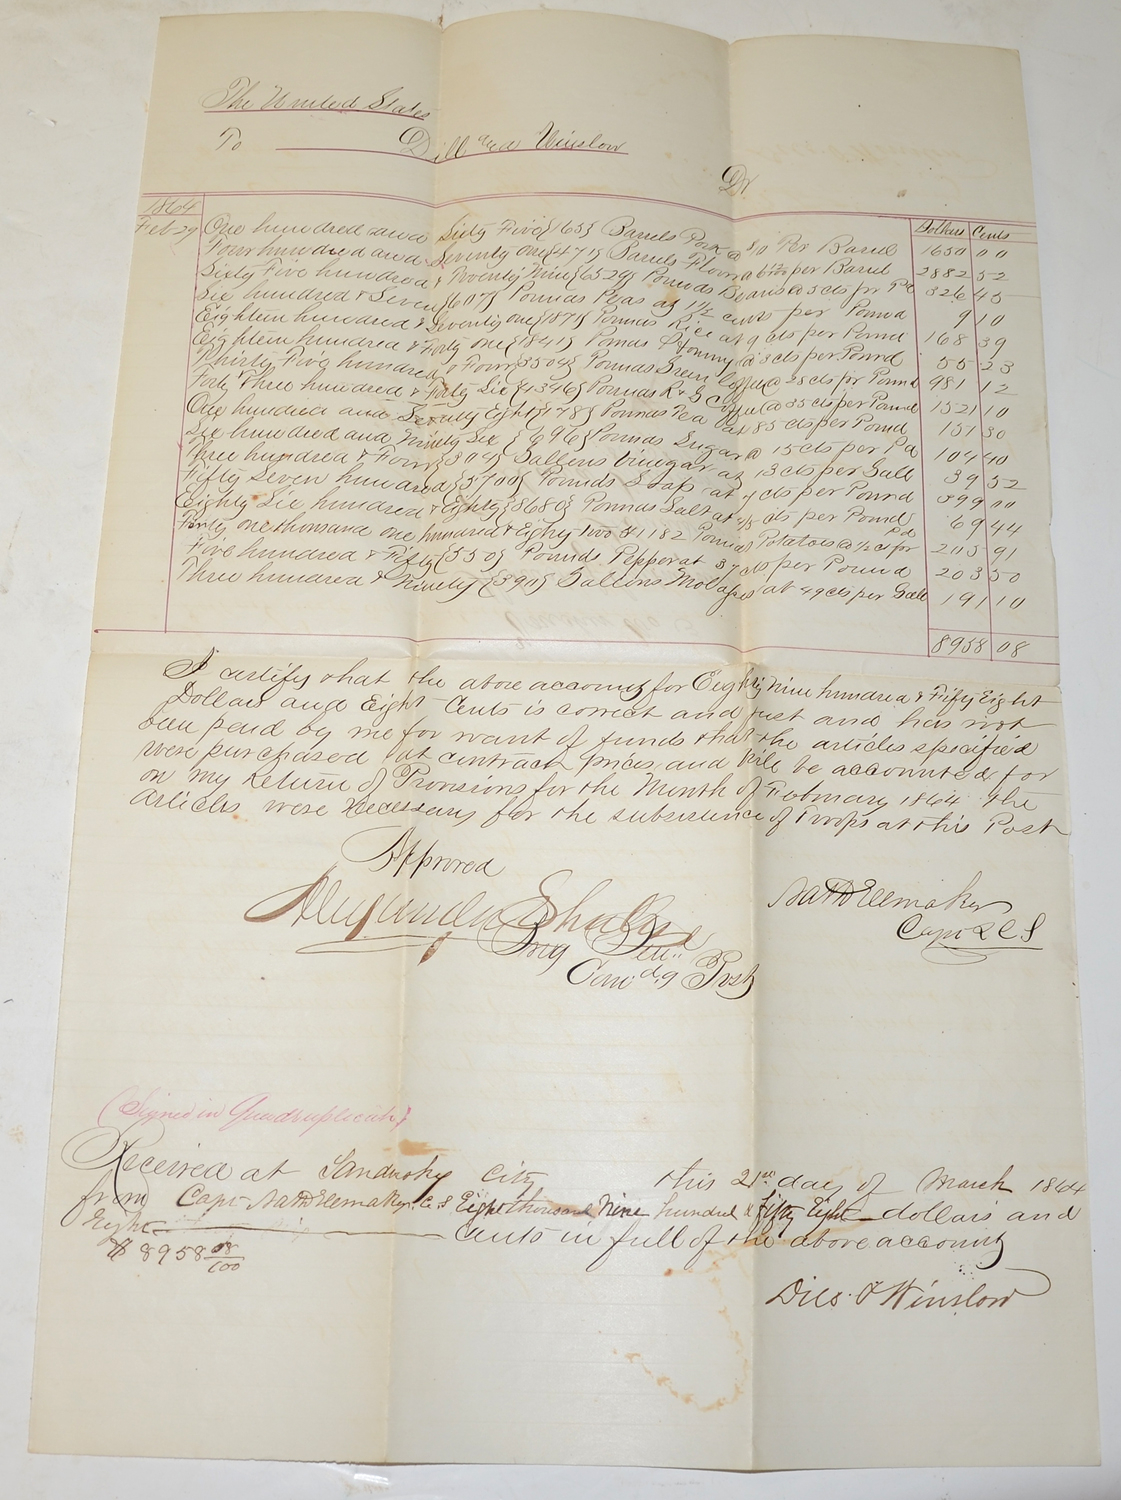 The United States
To Dill and Winslow
Dr
1864 Dollars Cents
Feb 29 One hundred and Sixty Five {165} Barrels Pork @ $10 Per Barrel 1650 00
Four hundred and Seventy one {471} Barrels Flour @ 6 12/100 per Barrel 2882 52
Sixty Five hundred & Twenty Nine {6529} Pounds Beans @ 5 cts per Pd 326 45
Six hundred & Seven {607} Pounds Peas at 1 1/2 cents per Pound 9 10
Eighteen hundred & Seventy one {1871} Pounds Rice at 9 cts per Pound 168 39
Eighteen hundred & Forty one {1841} Pounds Hominy @ 3 cts per Pound 55 23
Thirty Five hundred & Four {3504} Pounds Green Coffee @ 28 cts per Pound 981 12
Forty Three hundred & Forty Six {4346} Pounds R & G Coffee @ 35 cts per Pound 1521 10
One hundred and Seventy Eight {178} Pounds Tea at 85 cts per Pound 151 30
Six hundred and Ninety Six {696} Pounds Sugar @ 15 cts per Pd 104 40
Three hundred & Four {304} Gallons Vinegar at 13 cts per Gall 39 52
Fifty Seven hundred {5700} Pounds Soap at 7 cts per Pound 399 00
Eighty Six hundred & Eighty {8680} Pounds Salt at 4/5 cts per Pound 69 44
Forty one thousand one hundred & Eighty Two 41182 Pounds Potatoes @ 1/2 ct per Pd 205 91
Five hundred & Fifty {550} Pounds Pepper at 37 cts per Pound 203 50
Three hundred & Ninety {390} Gallons Molasses at 49 cts per Gall 191 10
8958 08
I certify that the above account for Eighty Nine hundred & Fifty Eight
Dollars and Eight Cents is correct and just and has not
been paid by me for want of funds that the articles specified
were purchased at contract prices, and will be accounted for
on my Return of Provisions for the Month of February 1864 the
Articles were necessary for the subsistence of Troops at this Post
Approved
Alexander Shaler
Brig Genl
Comdg Post
Nath Ellmaker
Capt & C.S
(Signed in Quadruplicate)
Received at Sandusky City this 21st day of March 1864
from Capt Nath Ellmaker C.S Eight thousand Nine hundred & Fifty Eight dollars and
Eight cents in full of the above account
$8958 08/100
Dill & Winslow